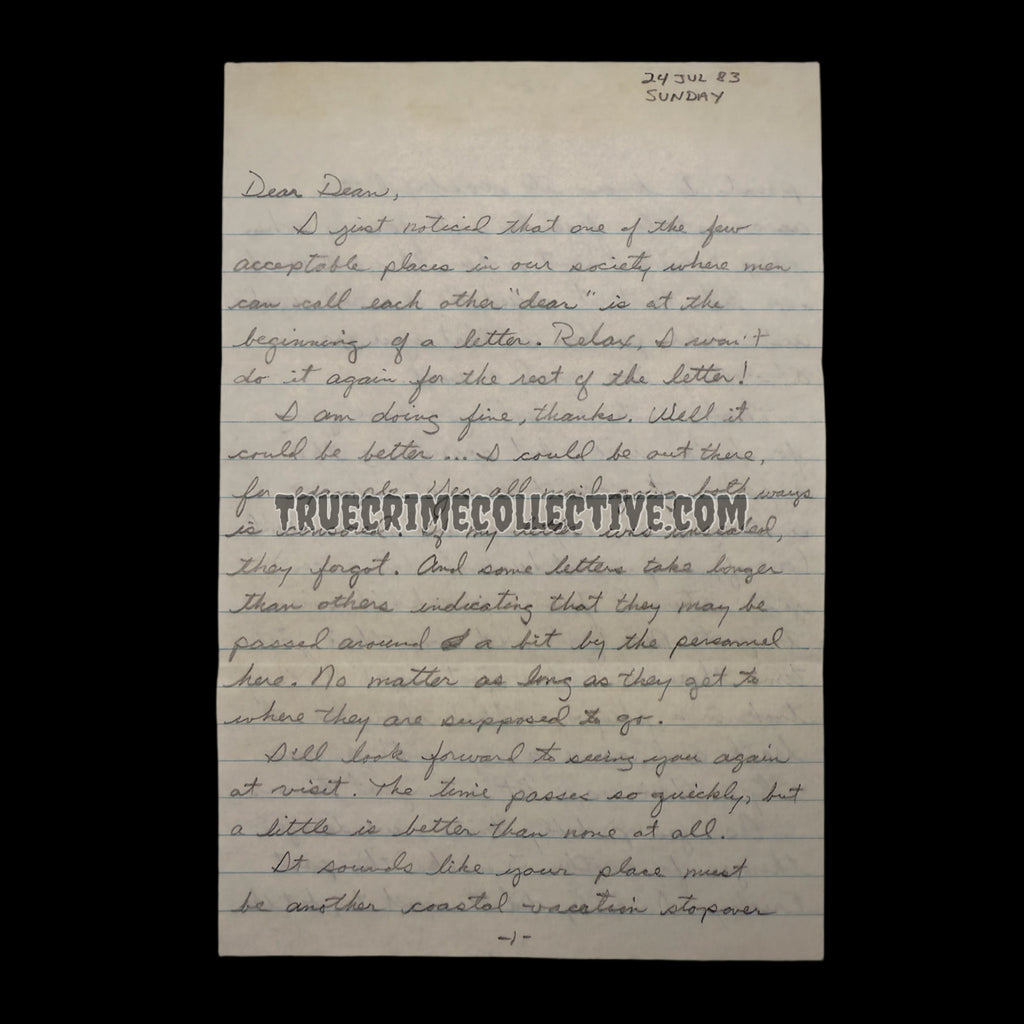 24 JUL 83
SUNDAY
Dear Dean,
I just noticed that one of the few
acceptable places in our society where men
can call each other "dear" is at the
beginning of a letter. Relax, I won't
do it again for the rest of the letter!
I am doing fine, thanks. Well it
could be better ... I could be out there,
for example. Yes all mail going both ways
TRUECRIMECOLLECTIVE.COM
is censored. If my letter was unsealed,
they forgot. And some letters take longer
than others indicating that they may be
passed around a bit by the personnel
here. No matter as long as they get to
where they are supposed to go.
I'll look forward to seeing you again
at visit. The time passes so quickly, but
a little is better than none at all.
It sounds like your place must
be another coastal vacation stopover
-1-